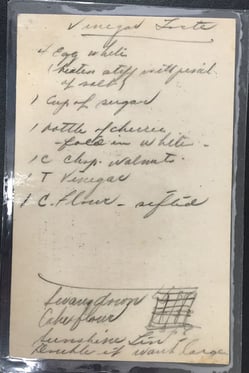 Vinegar Torte
4 Egg white
(beaten stiff with pinch
of salt)
1 Cup of sugar
1 bottle of cherries
fold in white -
1 C chop. walnuts
1 T Vinegar
1 C. flour - sifted
Swansdown
Cake flour
Sunshine Tin
Double if want large